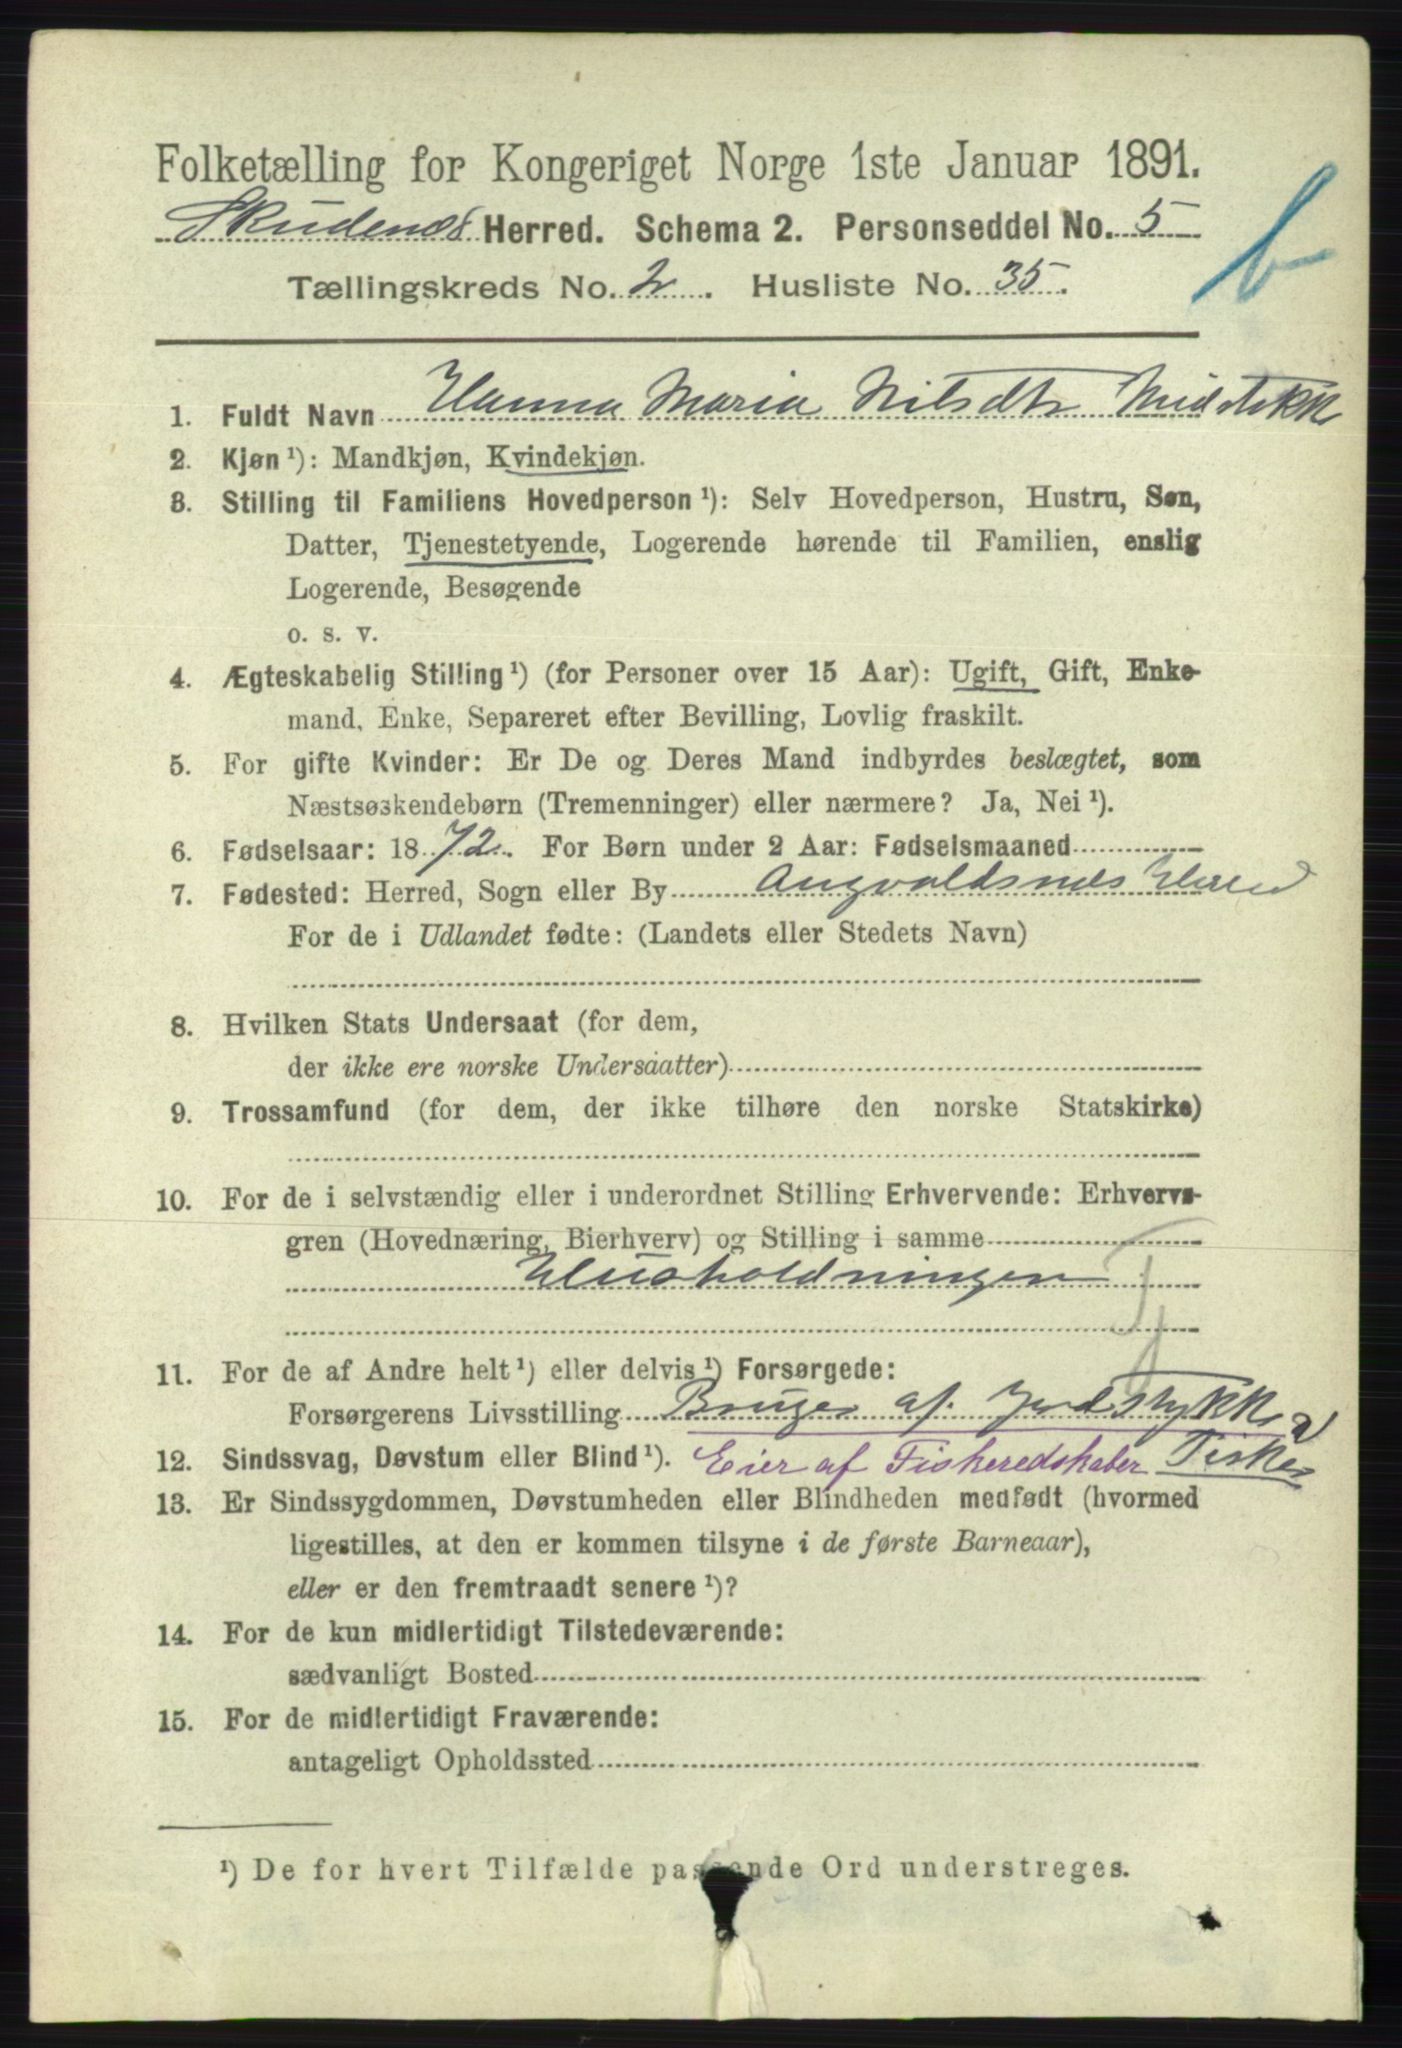 Folketælling for Kongeriget Norge 1ste Januar 1891.
Skudenæs Herred. Schema 2. Personseddel No. 5
b
Tællingskreds No. 2. Husliste No. 35.
1. Fuldt Navn Hanna Maria Nilsdtr
2. Kjøn ¹): Mandkjøn, Kvindekjøn.
3. Stilling til Familiens Hovedperson ¹): Selv Hovedperson, Hustru, Søn,
Datter, Tjenestetyende, Logerende hørende til Familien, enslig
Logerende, Besøgende
o. s. v.
4. Ægteskabelig Stilling ¹) (for Personer over 15 Aar): Ugift, Gift, Enke-
mand, Enke, Separeret efter Bevilling, Lovlig fraskilt.
5. For gifte Kvinder: Er De og Deres Mand indbyrdes beslægtet, som
Næstsøskendebørn (Tremenninger) eller nærmere? Ja, Nei ¹).
6. Fødselsaar: 1872. For Børn under 2 Aar: Fødselsmaaned
7. Fødested: Herred, Sogn eller By Augvaldsnæs Herred
For de i Udlandet fødte: (Landets eller Stedets Navn)
8. Hvilken Stats Undersaat (for dem,
der ikke ere norske Undersaatter)
9. Trossamfund (for dem, der ikke tilhøre den norske Statskirke)
10. For de i selvstændig eller i underordnet Stilling Erhvervende: Erhvervs-
gren (Hovednæring, Bierhverv) og Stilling i samme
Husholdningen
11. For de af Andre helt ¹) eller delvis ¹) Forsørgede:
Forsørgerens Livsstilling Bruger af Jordstykke
12. Sindssvag, Døvstum eller Blind ¹). Eier af Fiskeredskaber Fisker
13. Er Sindssygdommen, Døvstumheden eller Blindheden medfødt (hvormed
ligestilles, at den er kommen tilsyne i de første Barneaar),
eller er den fremtraadt senere ¹)?
14. For de kun midlertidigt Tilstedeværende:
sædvanligt Bosted
15. For de midlertidigt Fraværende:
antageligt Opholdssted
¹) De for hvert Tilfælde passende Ord understreges.